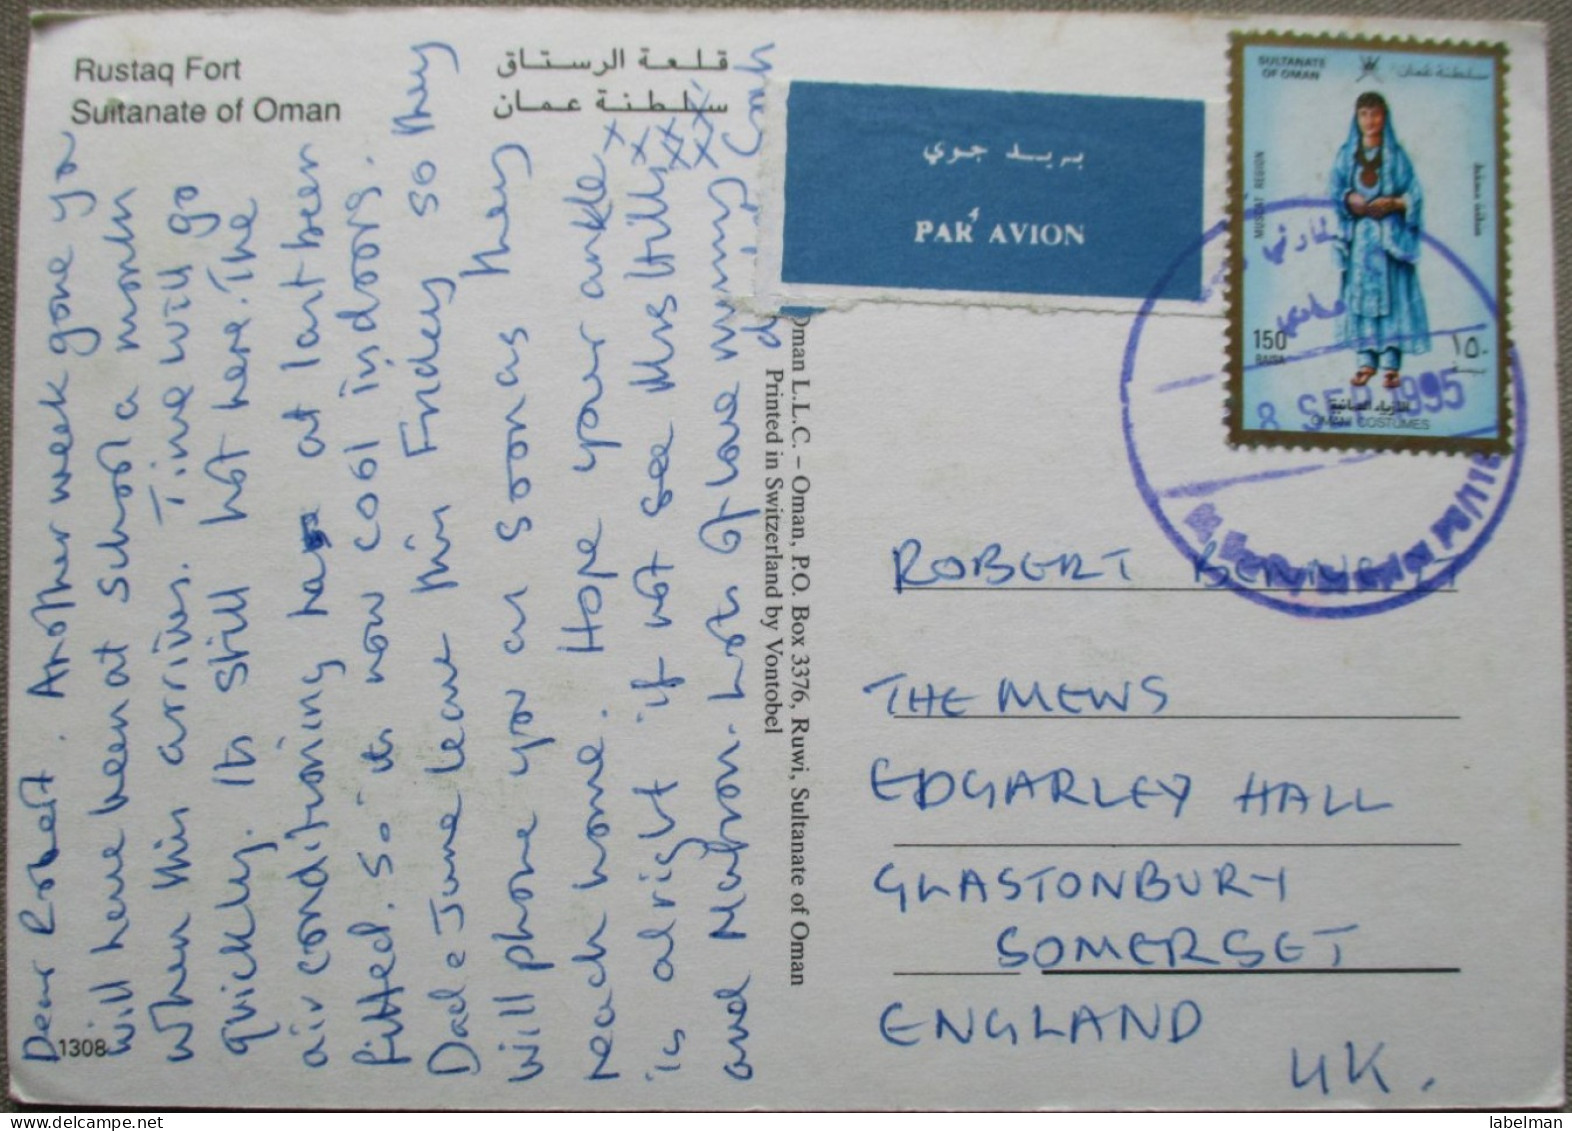 Rustaq Fort
Sultanate of Oman
قلعة الرستاق
سلطنة عمان
Dear Robert. Another week gone you
will have been at school a month
when this arrives. Time will go
quickly. Its still hot here. The
air conditioning has at last been
fitted. So its now cool indoors.
Dad & June leave this Friday so they
will phone you as soon as they
reach home. Hope your ankle
is alright if not see Mrs Hully
and Matron. Lots of love mummy
X
X X
X X
X X
1308
Oman L.L.C. – Oman, P.O. Box 3376, Ruwi, Sultanate of Oman
Printed in Switzerland by Vontobel
بريد جوي
PAR AVION
SULTANATE
OF OMAN
سلطنة عمان
MUSCAT REGION
منطقة مسقط
150
BAISA
١٥٠
الأزياء العمانية
OMAN COSTUMES
8 SEP 1995
ROBERT
THE MEWS
EDGARLEY HALL
GLASTONBURY
SOMERSET
ENGLAND
UK.
labelman
www.delcampe.net